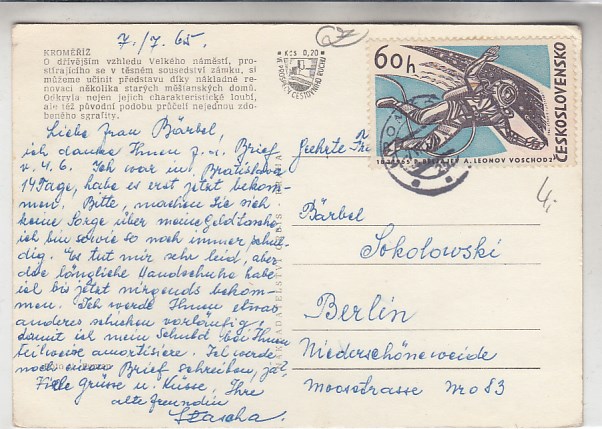 7./7. 65.
KROMĚŘÍŽ
O dřívějším vzhledu Velkého náměstí, pro-
stírajícího se v těsném sousedství zámku, si
můžeme učinit představu díky nákladné re-
novaci několika starých měšťanských domů.
Odkryla nejen jejich charakteristické loubí,
ale též původní podobu průčelí nejednou zdo-
beného sgrafity.
Kčs 0,20
VE PROSPĚCH CESTOVNÍHO RUCHU
60h
ČESKOSLOVENSKO
18.3.1965 P. BĚLJAJEV A. LEONOV VOSCHOD 2
4,-
Liebe Frau Bärbel,
ich danke Ihnen f. d. Brief
v. 4. 6. Ich war in Bratislava
14 Tage, habe es erst jetzt bekom-
men. Bitte, machen Sie sich
keine Sorge über meine Geldtasche
ich bin sowie so noch immer schul-
dig. Es tut mir sehr leid, aber
die längliche Handschuhe habe
ich bis jetzt nirgends bekom-
men. Ich werde Ihnen etwas
anderes schicken vorläufig,
damit ich mein Schuld bei Ihnen
teilweise amortisiere. Ich werde
noch einen Brief schreiben, ja!
Viele Grüsse u. Küsse, Ihre
alte Freundin
Geehrte
Bärbel
Sokolowski
Berlin
Niederschöneweide
Moosstrasse No 83